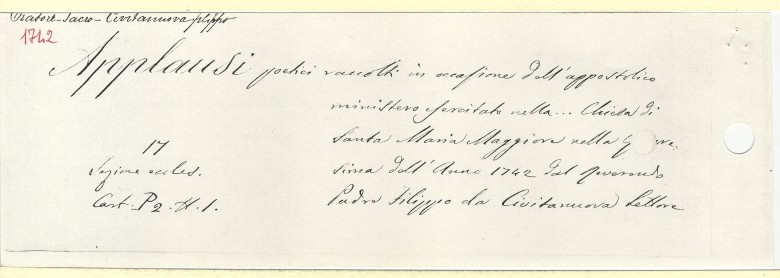 Oratore-Sacro-Civitanova filippo
1742
Applausi poetici raccolti in occasione dell'appostolico
ministero esercitato nella... Chiesa di
Santa Maria Maggiore nella
sima dell'Anno 1742 dal Reverendo
Padre Filippo da Civitanuova Lettore
17
Sezione eccles.
Cart. P2. H. 1.